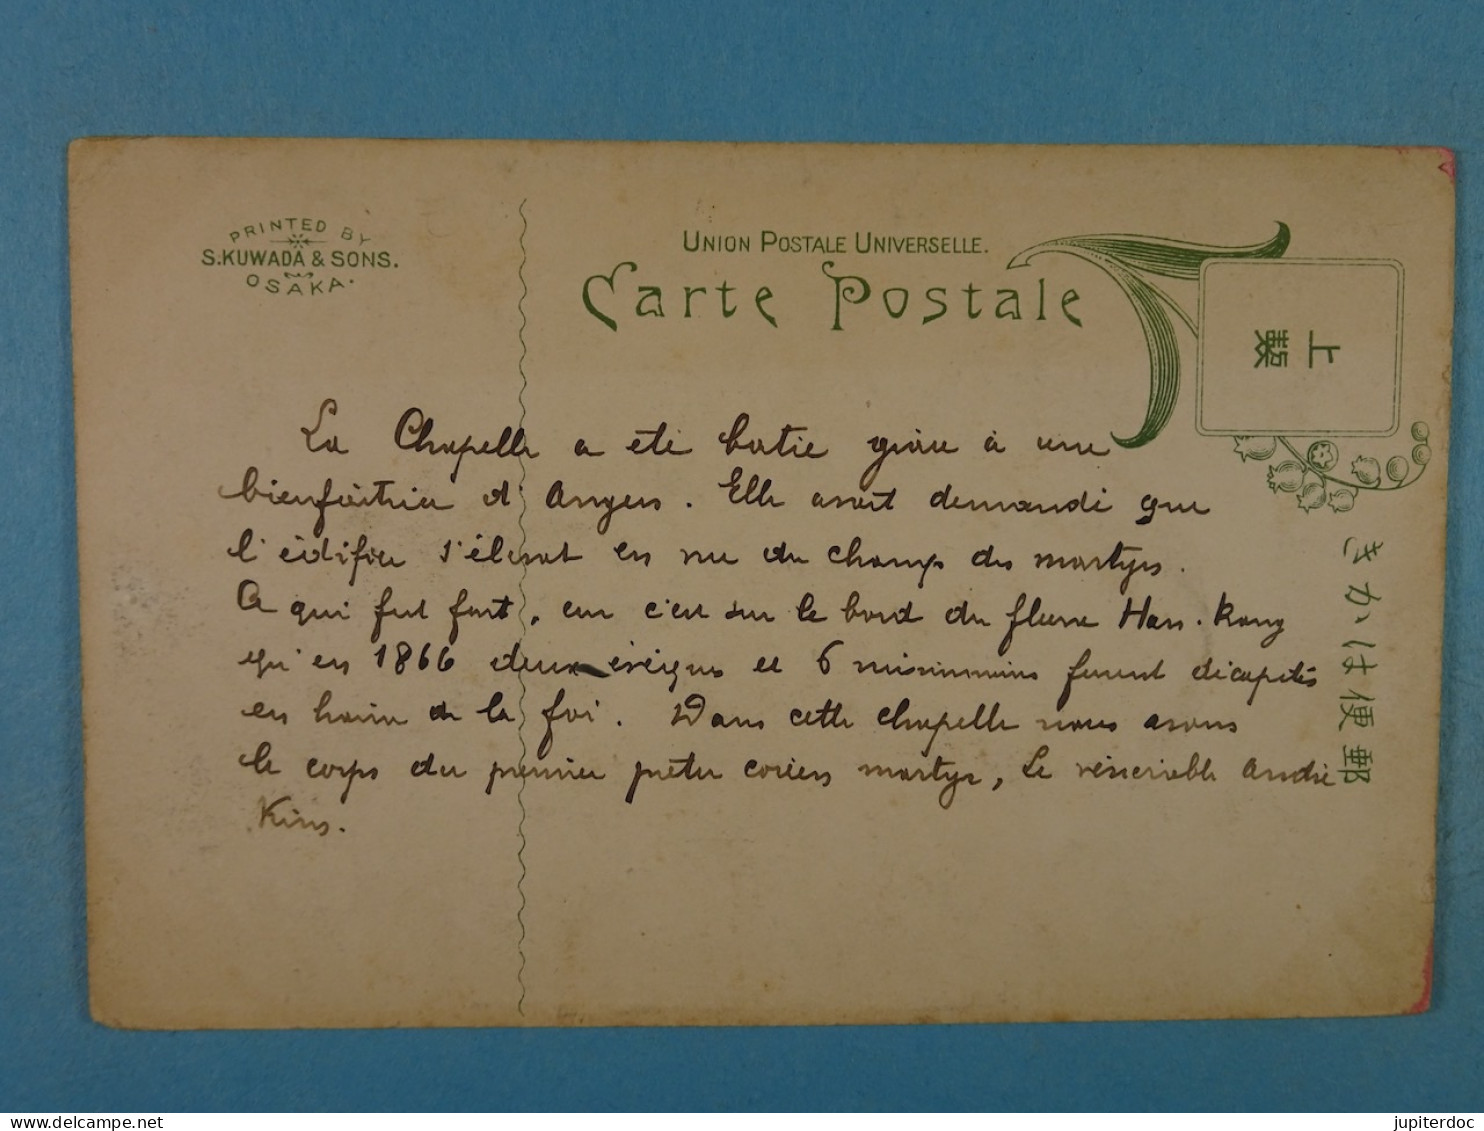 PRINTED BY
S.KUWADA & SONS.
OSAKA.
UNION POSTALE UNIVERSELLE.
Carte Postale
上製
きかは便郵
La Chapelle a été batie grâce à une
bienfaitrice d'Angers. Elle avait demandé que
l'édifice s'élevat en vue du champ des martyrs.
Ce qui fut fait, car c'est sur le bord du fleuve Han-Kang
qu'en 1866 deux évêques et 6 missionnaires furent décapités
en haine de la foi. Dans cette chapelle nous avons
le corps du premier prêtre coréen martyr, le vénérable André
Kim.
delcampe.net
jupiterdoc